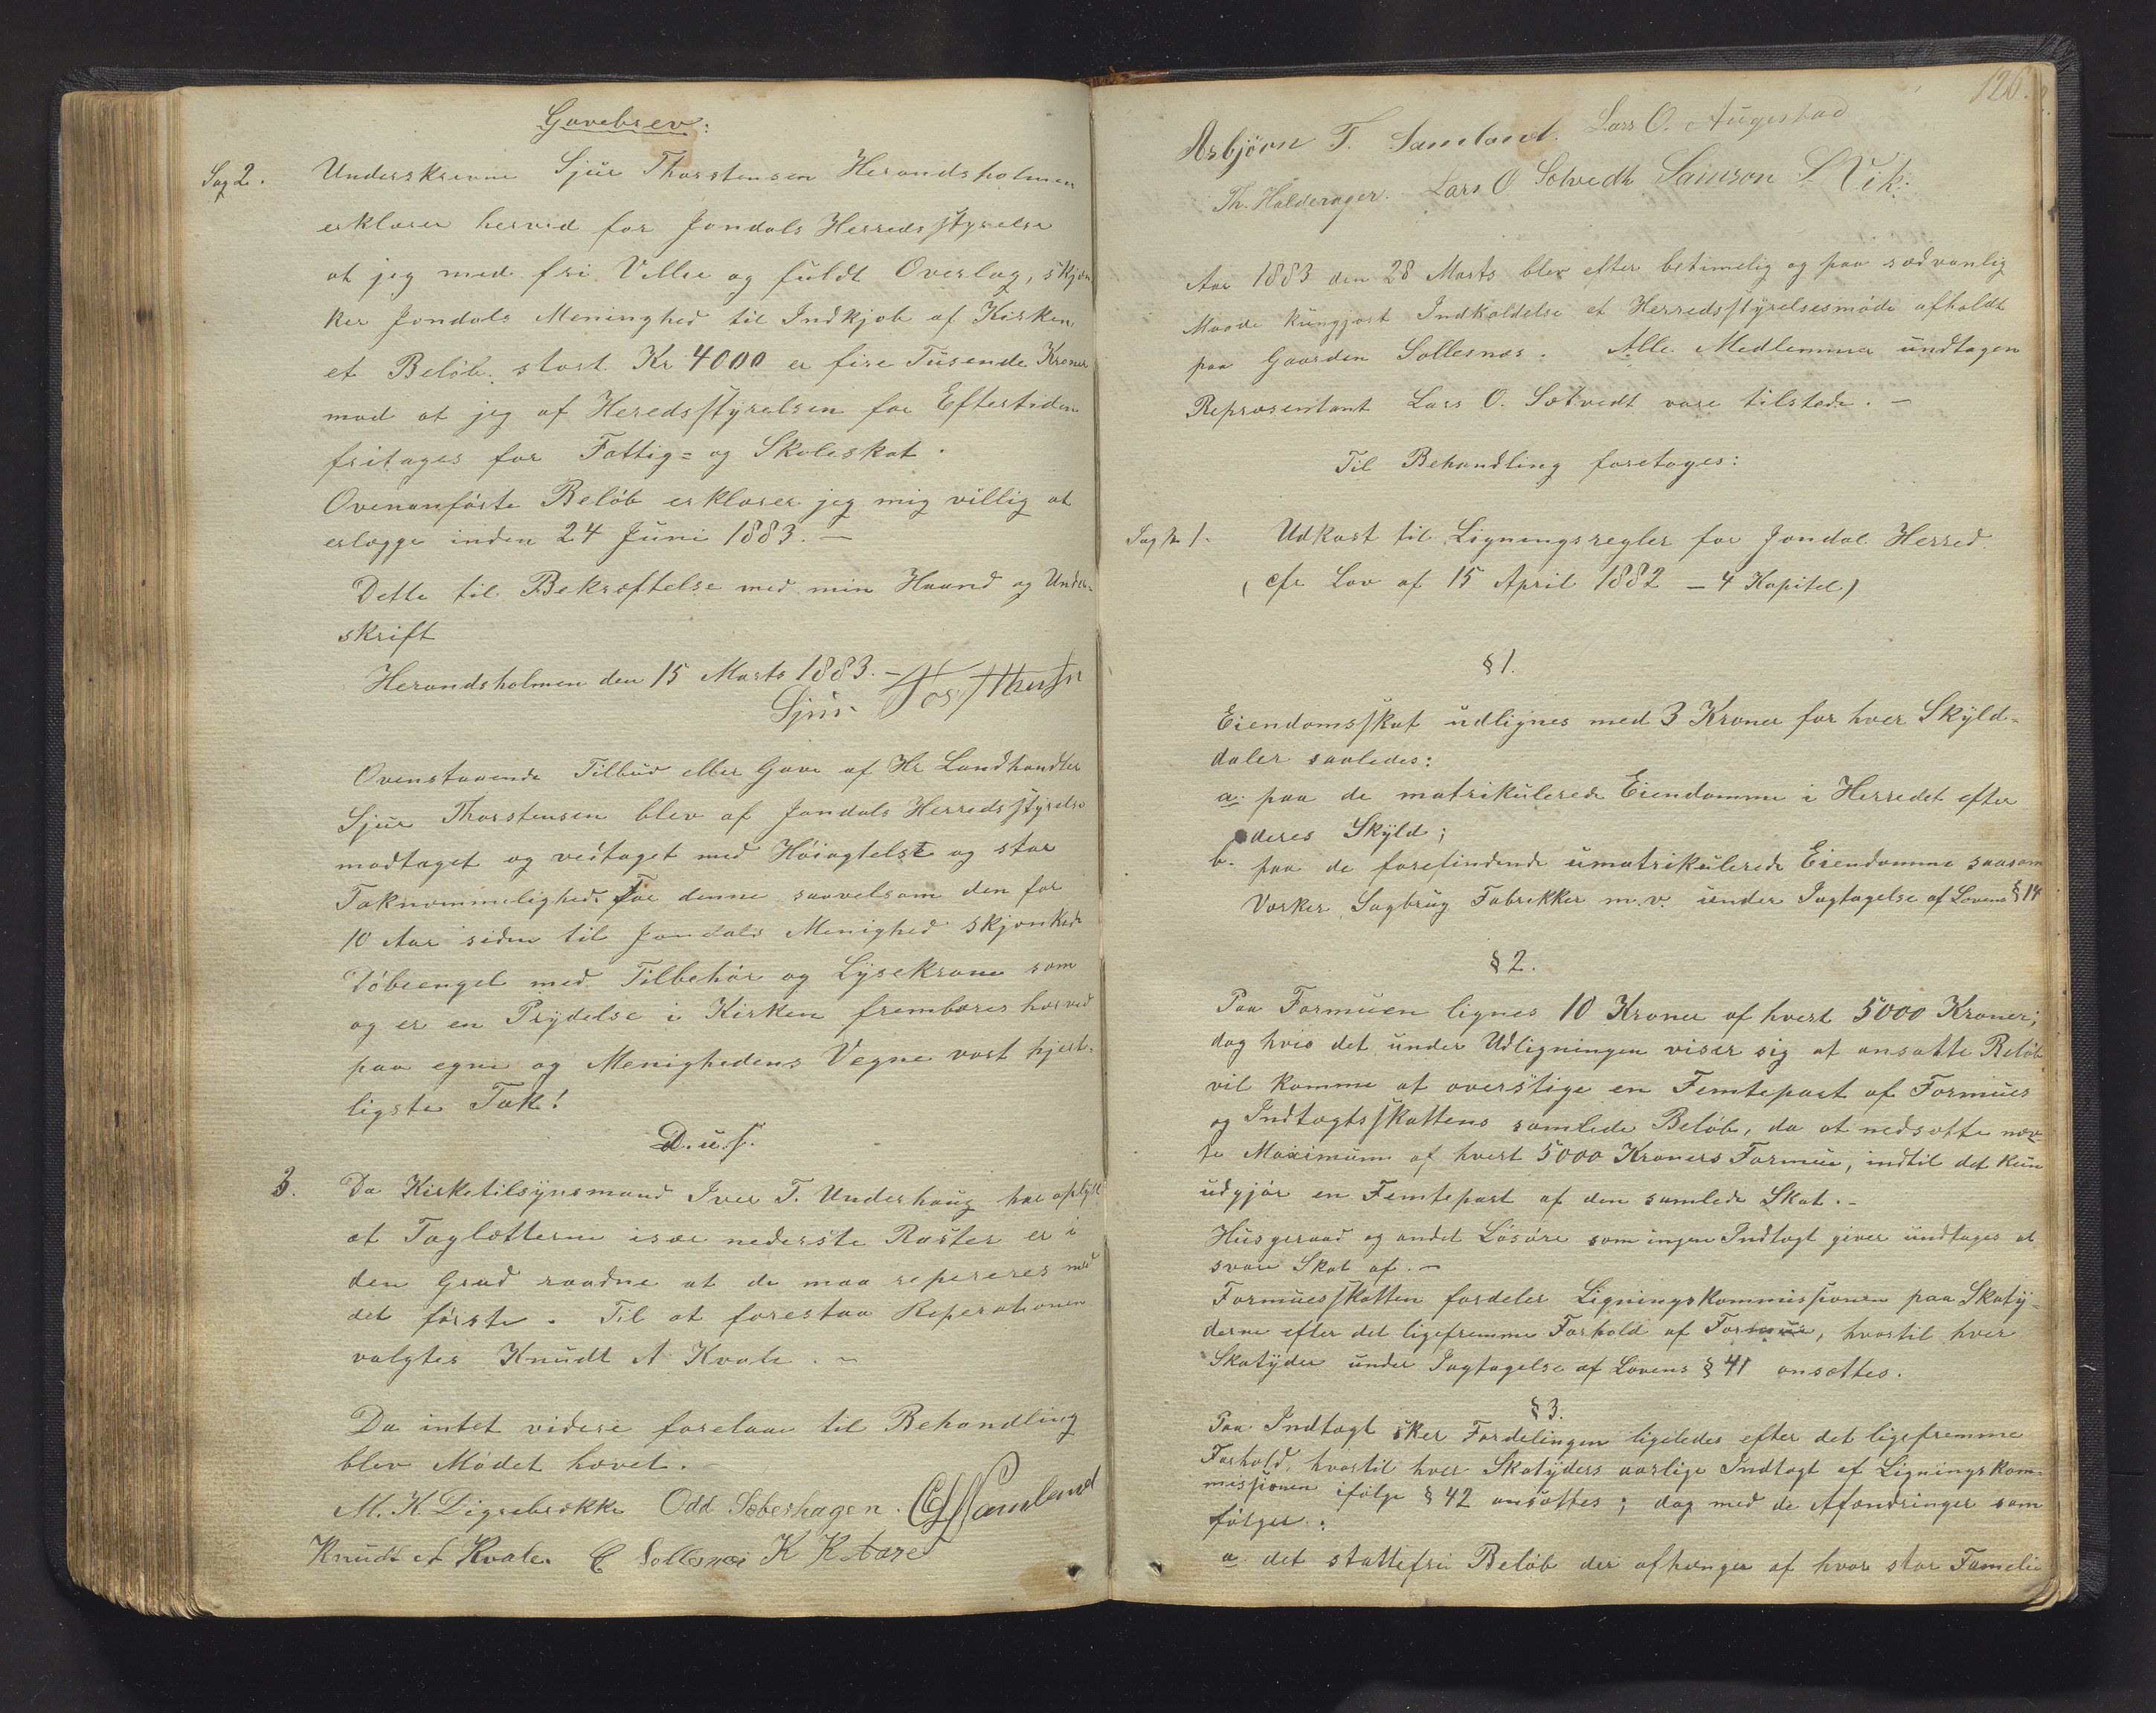 Gavebrev:
Sag 2. Underskrevne Sjur Thorstensen Herandsholmen
erklærer herved for Jondals Herredsstyrelse
at jeg med fri Vellie og fuldt Overlæg, skjæn
ker Jondals Meninghed til Indkjøb af Kirken
et Beløb stort Kr 4000 er fire Tusende Kroner
mod at jeg af Heredsstyrelsen for Eftertiden
fritages for Fattig= og Skoleskat.
Ovenanførte Beløb erklærer jeg mig villig at
erlægge inden 24 Juni 1883. —
Dette til Bekræftelse med min Haand og Under-
skrift
Herandsholmen den 15 Marts 1883. —
Sjur
Ovenstaaende Tilbud eller Gave af Hr Landhandler
Sjur Thorstensen blev af Jondals Herredsstyrelse
modtaget og vedtaget med Høiagtelse og stor
Taknemmelighed. For denne saavelsom den for
10 Aar siden til Jondals Menighed skjænkede
Døbeengel med Tilbehør og Lysekrone som
og er en Prydelse i Kirken frembæres herved
paa egne og Menighedens Vegne vort hjert-
ligste Tak!
D.u.s.
3. Da Kirketilsynsmand Iver T. Underhaug har oplyst
at Taglætterne især nederste Raster er i
den Grad raadne at de maa repereres med
det første. Til at forestaa Reperationen
valgtes Knudt A Kvale. —
Da intet videre forelaae til Behandling
blev Mødet hævet.
M. K. Digrebrække Odd Sæbershagen. Samland
Knudt A Kvale. C Sollesnes K K Aare
126.
Asbjørn T. Samland. Lars O. Augestad
Th. Halderager. Lars O Sætvedt Samson S Vik.
Aar 1883 den 28 Marts blev efter betimelig og paa sædvanlig
Maade kungjort Indkaldelse et Herredsstyrelsesmøde afholdt
paa Gaarden Sollesnæs. Alle Medlemmer undtagen
Repræsentant Lars O. Sætvedt vare tilstede. —
Til Behandling foretages:
Sag No 1. Udkast til Ligningsregler for Jondal Herred.
(cfr Lov af 15 April 1882 – 4 Kapitel)
§ 1.
Eiendomsskat udlignes med 3 Kroner for hver Skyld-
daler saaledes:
a. paa de matrikulerede Eiendomme i Herredet efter
deres Skyld;
b. paa de forefindende umatrikulerede Eiendomme saasom
Værker, Sagbrug Fabrikker m.v. under Iagtagelse af Lovens § 14
§ 2.
Paa Formuen lignes 10 Kroner af hvert 5000 Kroner;
dog hvis det under Udligningen viser sig at ansatte Beløb
vil komme at overstige en Femtepart af Formues
og Indtægtsskattens samlede Beløb, da at nedsætte næv-
te Maximum af hvert 5000 Kroners Formue, indtil det kun
udgjør en Femtepart af den samlede Skat. –
Husgeraad og andet Løsøre som ingen Indtægt giver undtages at
svare Skat af. —
Formuesskatten fordeler Ligningskommissionen paa Skaty-
derne efter det ligefremme Forhold af Formue, hvortil hver
Skatyder under Iagtagelse af Lovens § 41 ansættes.
§ 3.
Paa Indtægt sker Fordelingen ligeledes efter det ligefremme
Forhold, hvortil hver Skatyders aarlige Indtægt af Ligningskom-
missionen ifølge § 42 ansættes; dog med de Afændringer som
følger:
a. det skattefri Beløb der afhænger af hvor stor Famelie